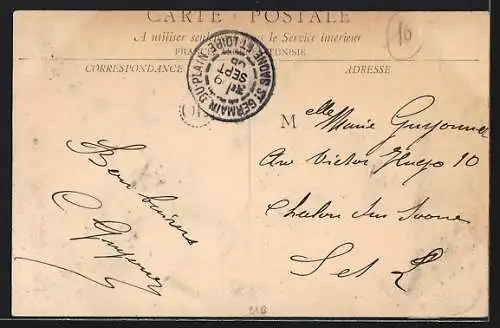 CARTE POSTALE
A utiliser seulement dans le Service intérieur
FRANCE TUNISIE
CORRESPONDANCE
ADRESSE
10
ST GERMAIN DU PLAIN
SAONE ET LOIRE
9
SEPT
Bons baisers
C Guyonnet
M elle Marie Guyonnet
Av Victor Hugo 10
Chalon sur Saone
S et L